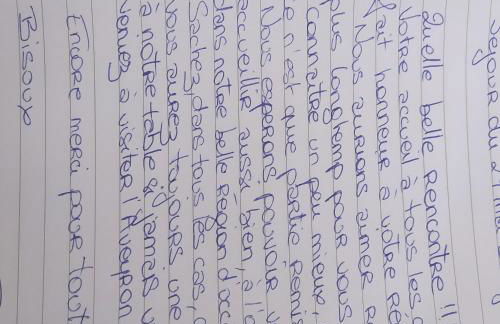 Séjour du 2
Quelle belle rencontre !!
Votre accueil à tous les
fait honneur à votre ré
Nous aurions aimer
plus longtemp pour vous
connaître un peu mieux,
ce n'est que partie remis
Nous esperons pouvoir v
accueillir aussi bien, à l'o
dans notre belle région d'occ
Sachez, dans tous les cas,
vous aurez toujours une
à notre table si jamais v
venuez à visiter l'Aveyron
Encore merci pour tout
Bisoux